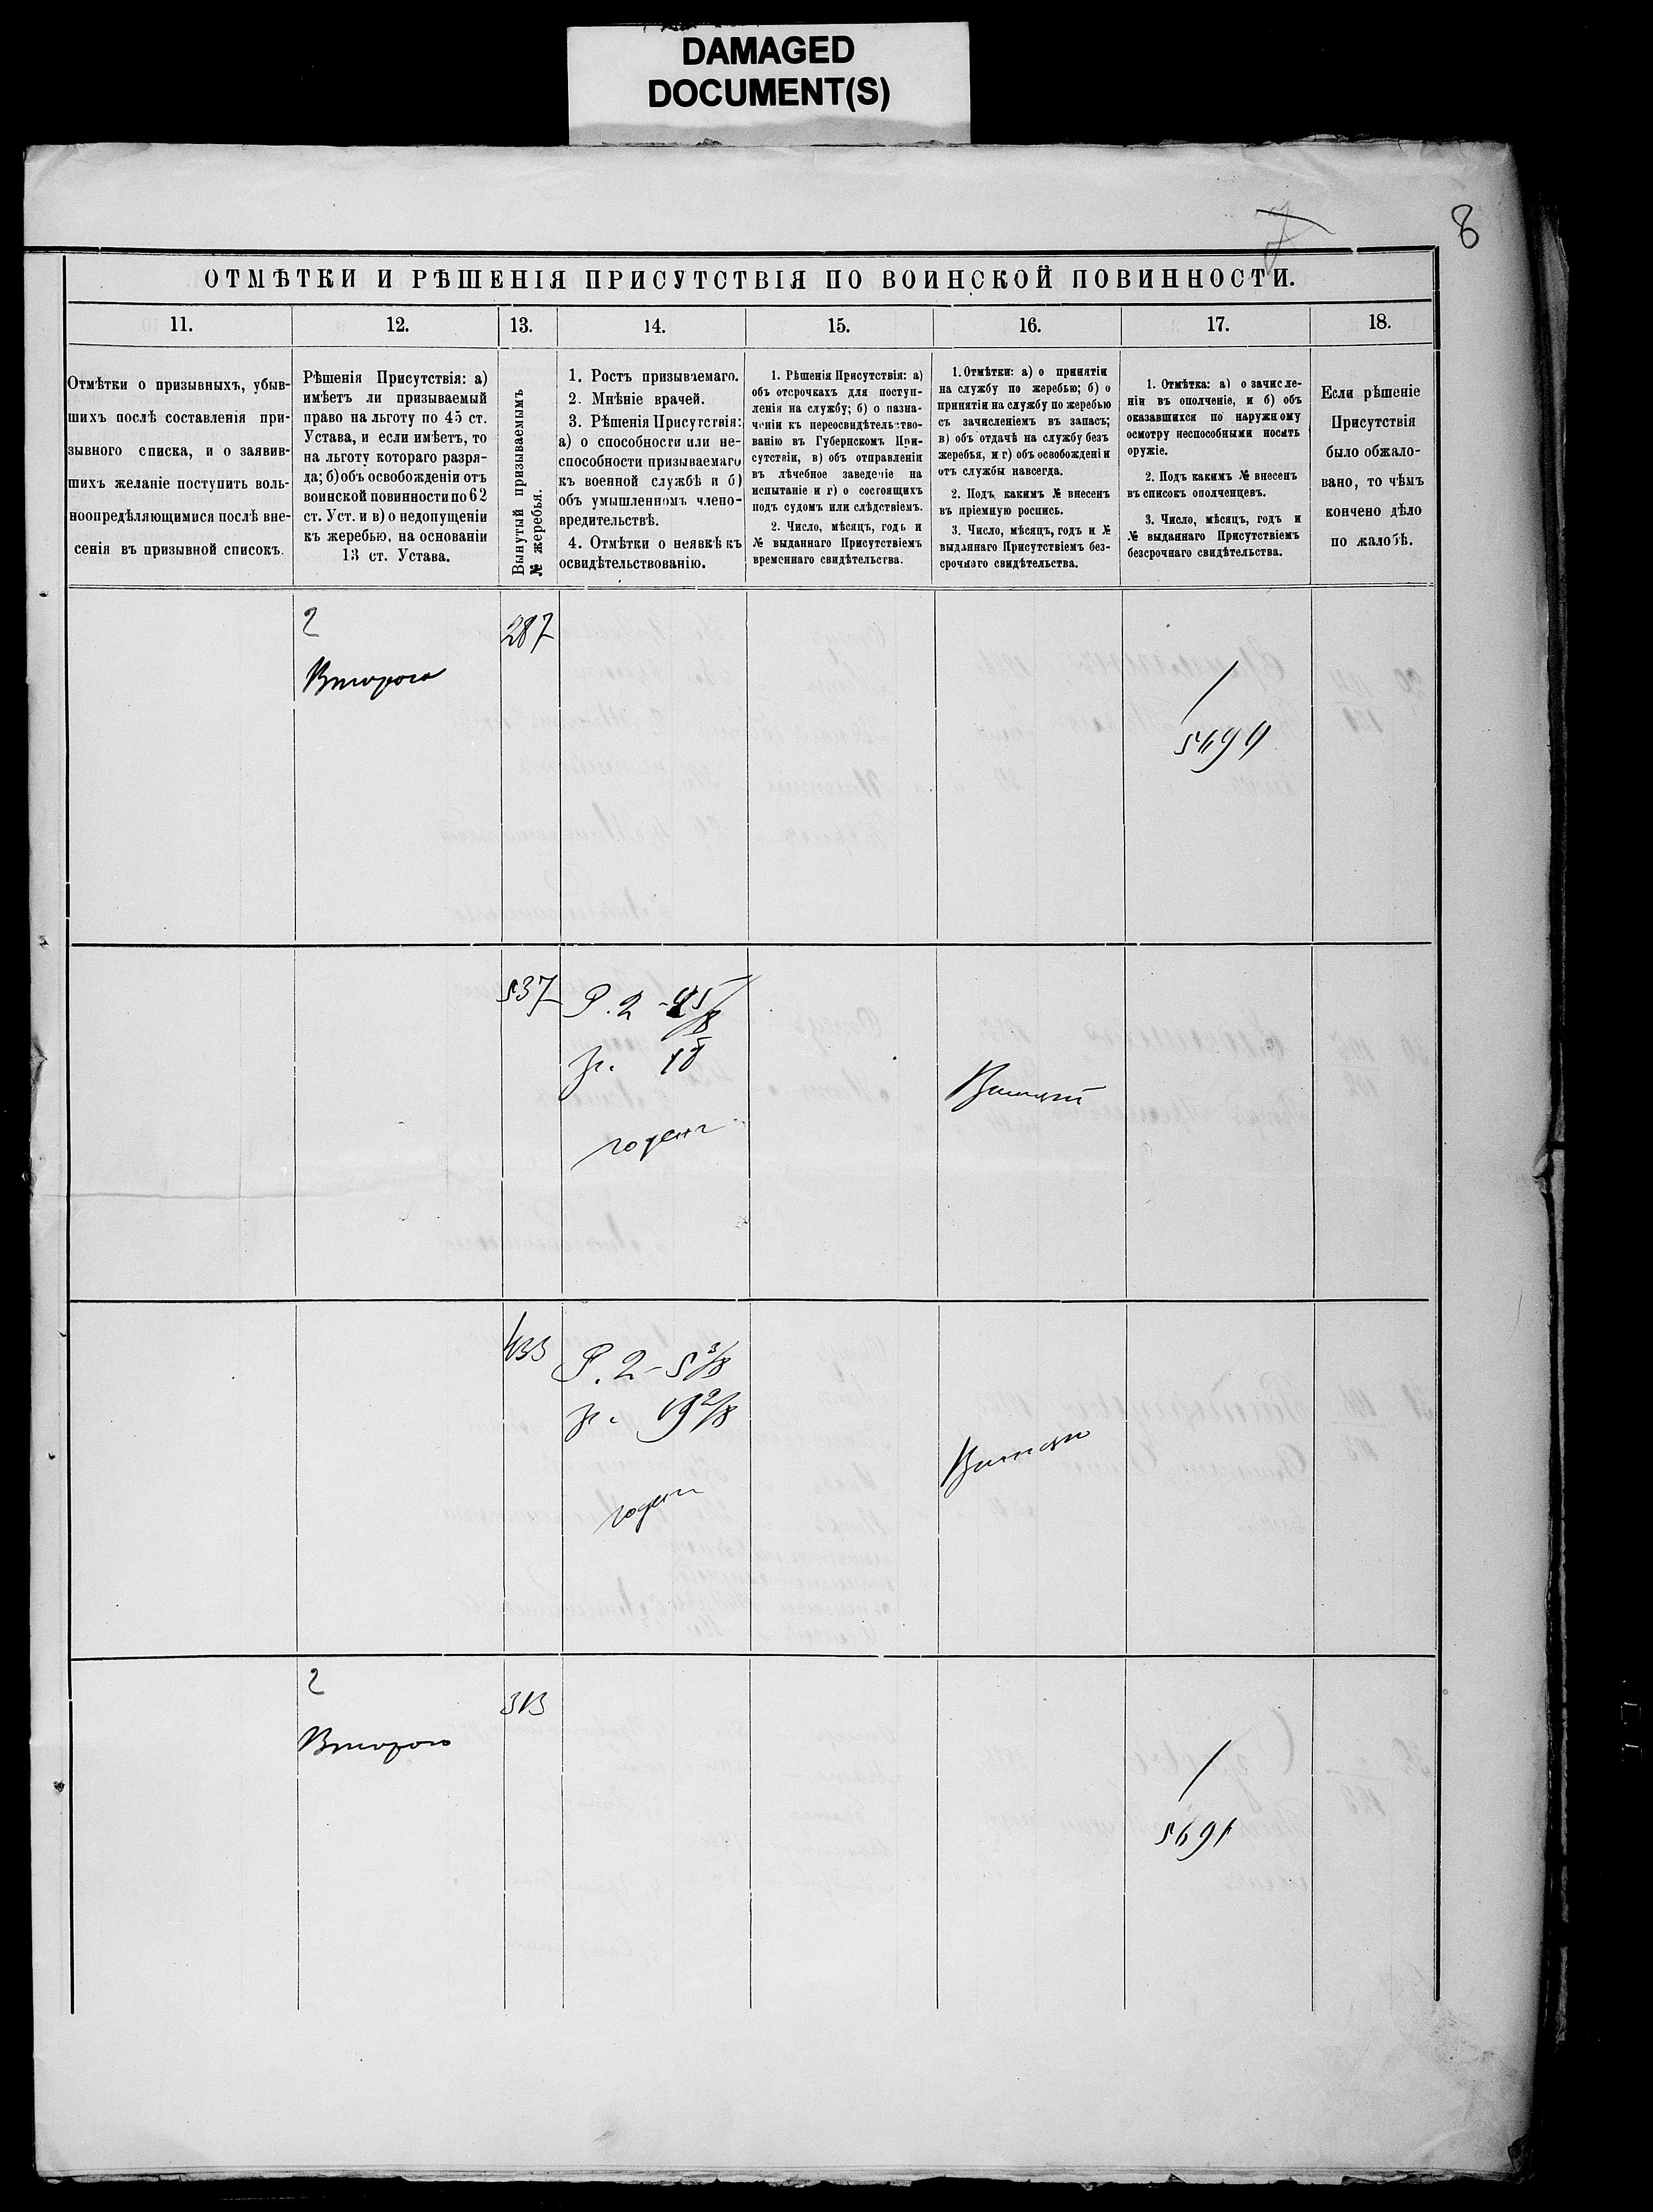 DAMAGED
DOCUMENT(S)
7
8
ОТМѢТКИ И РѢШЕНІЯ ПРИСУТСТВІЯ ПО ВОИНСКОЙ ПОВИННОСТИ.
11.
12.
13.
14.
15.
16.
17.
18.
Отмѣтки о призывныхъ, убыв-
шихъ послѣ составленія при-
зывного списка, и о заявив-
шихъ желаніе поступить воль-
ноопредѣляющимися послѣ вне-
сенія въ призывной списокъ.
Рѣшенія Присутствія: а)
имѣетъ ли призываемый
право на льготу по 45 ст.
Устава, и если имѣетъ, то
на льготу котораго разря-
да; б) объ освобожденіи отъ
воинской повинности по 62
ст. Уст. и в) о недопущеніи
къ жеребью, на основаніи
13 ст. Устава.
Вынутый призываемымъ
№ жеребья.
1. Ростъ призываемаго.
2. Мнѣніе врачей.
3. Рѣшенія Присутствія:
а) о способности или не-
способности призываемаго
къ военной службѣ и б)
объ умышленномъ члено-
вредительствѣ.
4. Отмѣтки о неявкѣ къ
освидѣтельствованію.
1. Рѣшенія Присутствія: а)
объ отсрочкахъ для поступ-
ленія на службу; б) о назна-
ченіи къ переосвидѣтельство-
ванію въ Губернскомъ При-
сутствіи, в) объ отправленіи
въ лѣчебное заведеніе на
испытаніе и г) о состоящихъ
подъ судомъ или слѣдствіемъ.
2. Число, мѣсяцъ, годъ и
№ выданнаго Присутствіемъ
временнаго свидѣтельства.
1. Отмѣтки: а) о принятіи
на службу по жеребью; б) о
принятіи на службу по жеребью
съ зачисленіемъ въ запасъ;
в) объ отдачѣ на службу безъ
жеребья, и г) объ освобожденіи
отъ службы навсегда.
2. Подъ какимъ № внесенъ
въ пріемную роспись.
3. Число, мѣсяцъ, годъ и №
выданнаго Присутствіемъ без-
срочнаго свидѣтельства.
1. Отмѣтка: а) о зачисле-
ніи въ ополченіе, и б) объ
оказавшихся по наружному
осмотру неспособными носить
оружіе.
2. Подъ какимъ № внесенъ
въ списокъ ополченцевъ.
3. Число, мѣсяцъ, годъ и
№ выданнаго Присутствіемъ
безсрочнаго свидѣтельства.
Если рѣшеніе
Присутствія
было обжало-
вано, то чѣмъ
кончено дѣло
по жалобѣ.
2
287
Второго
/
537
Р. 2 -
годенъ
433
Р. 2 - 5 3/8
19 2/8
годен
2
313
Второго
/
5691